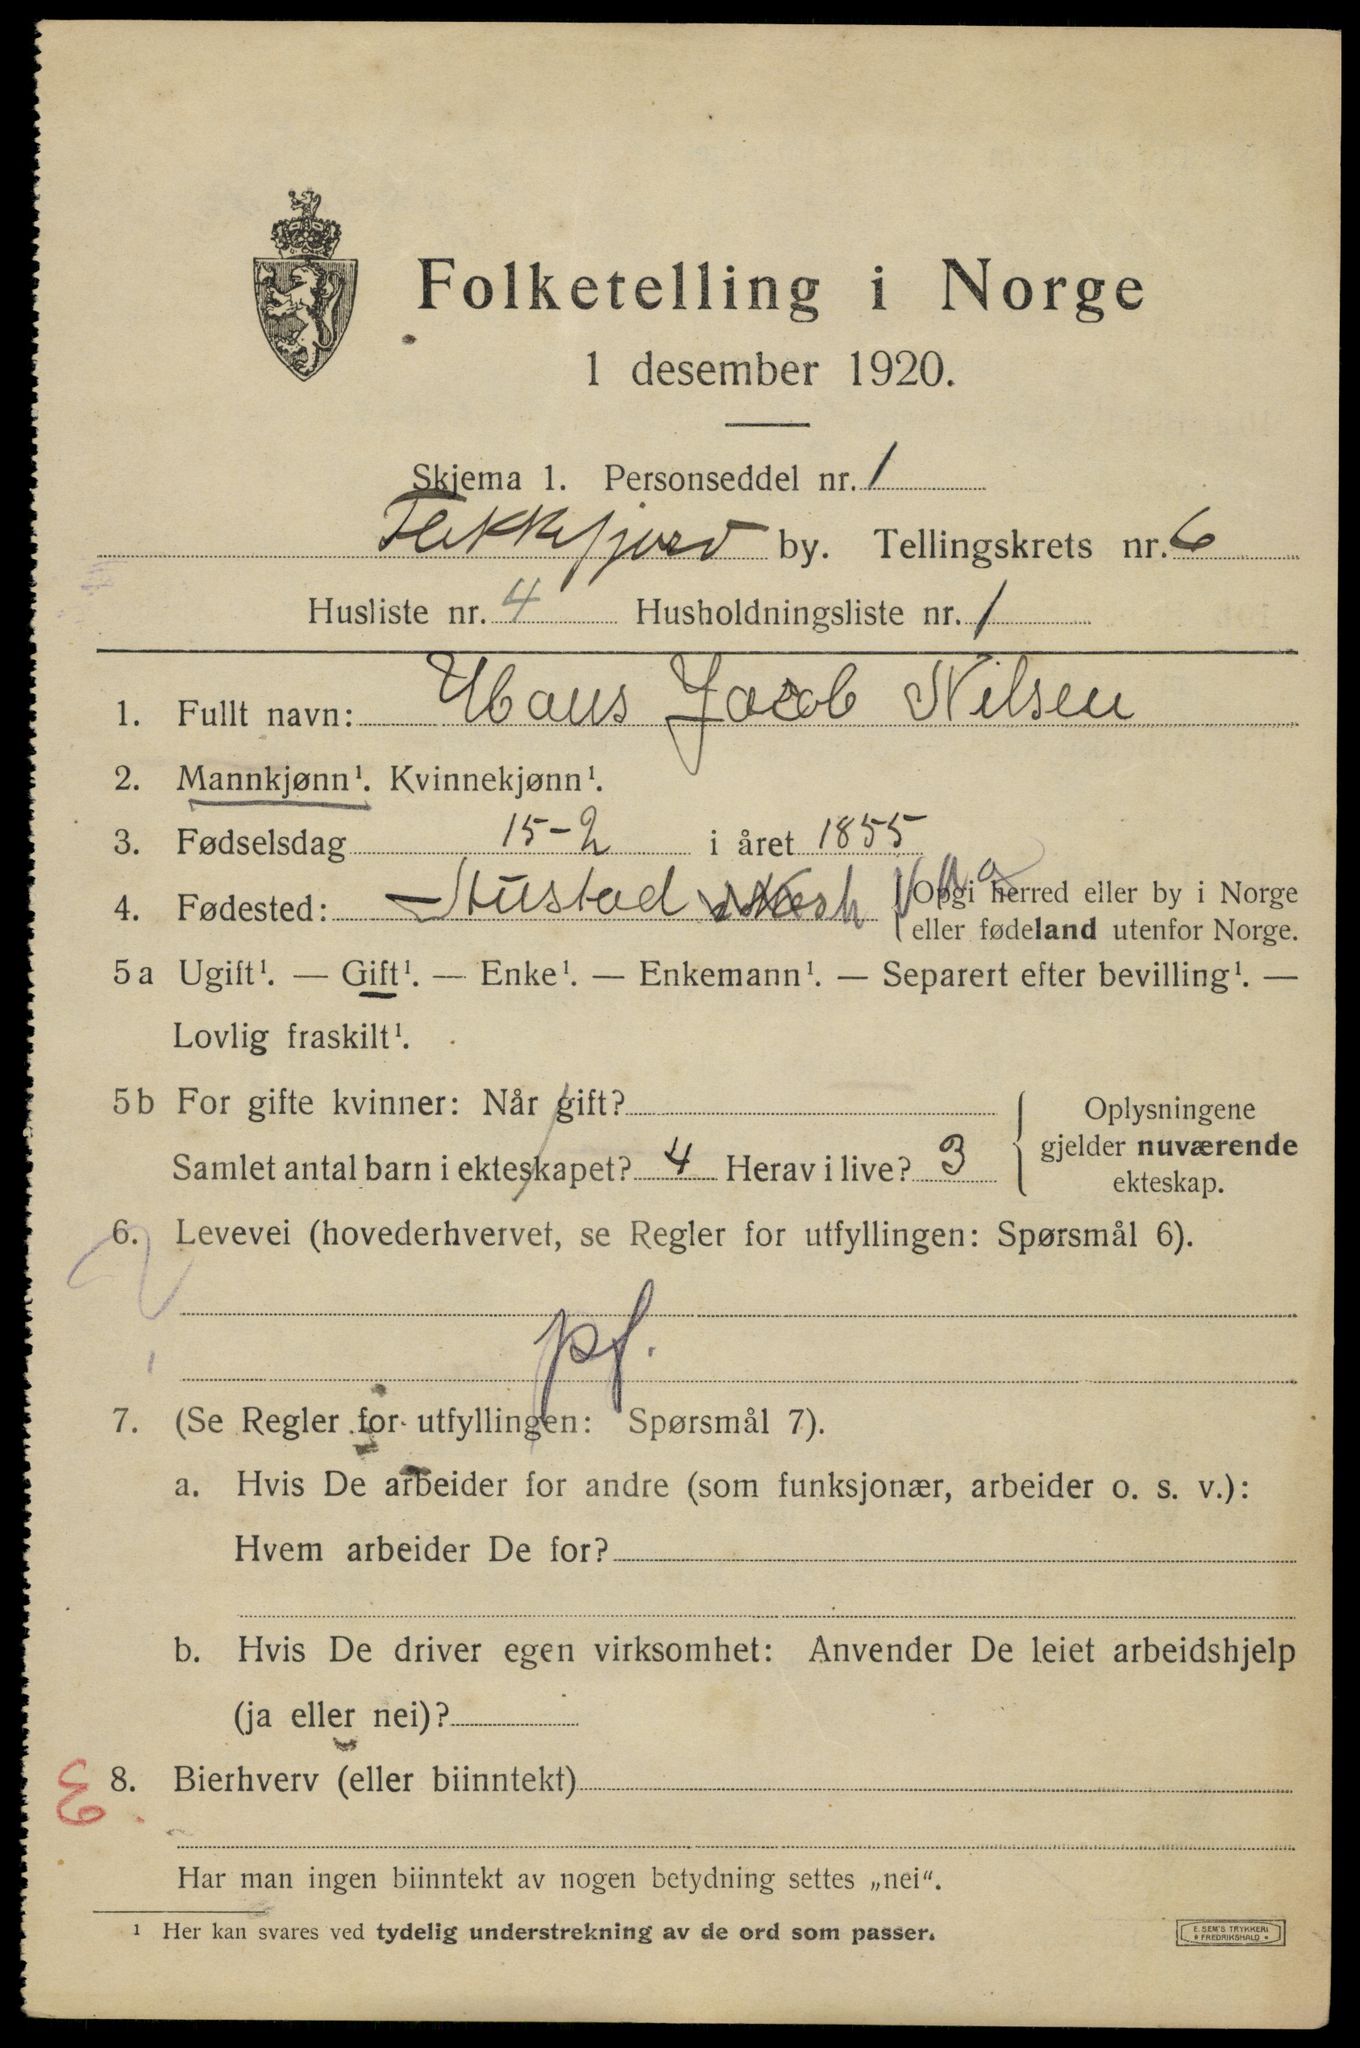 Folketelling i Norge
1 desember 1920.
Skjema 1. Personseddel nr. 1
Flekkefjord by. Tellingskrets nr. 6
Husliste nr. 4 Husholdningsliste nr. 1
1. Fullt navn: Hans Jacob Nilsen
2. Mannkjønn¹. Kvinnekjønn¹.
3. Fødselsdag 15-2 i året 1855
4. Fødested:
Opgi herred eller by i Norge
eller fødeland utenfor Norge.
5a Ugift¹. — Gift¹. — Enke¹. — Enkemann¹. — Separert efter bevilling¹. —
Lovlig fraskilt¹.
5b For gifte kvinner: Når gift?
Samlet antal barn i ekteskapet? 4 Herav i live? 3
Oplysningene
gjelder nuværende
ekteskap.
6. Levevei (hovederhvervet, se Regler for utfyllingen: Spørsmål 6).
pf.
7. (Se Regler for utfyllingen: Spørsmål 7).
a. Hvis De arbeider for andre (som funksjonær, arbeider o. s. v.):
Hvem arbeider De for?
b. Hvis De driver egen virksomhet: Anvender De leiet arbeidshjelp
(ja eller nei)?
3
8. Bierhverv (eller biinntekt)
Har man ingen biinntekt av nogen betydning settes „nei“.
¹ Her kan svares ved tydelig understrekning av de ord som passer.
E. SEM'S TRYKKERI
FREDRIKSHALD